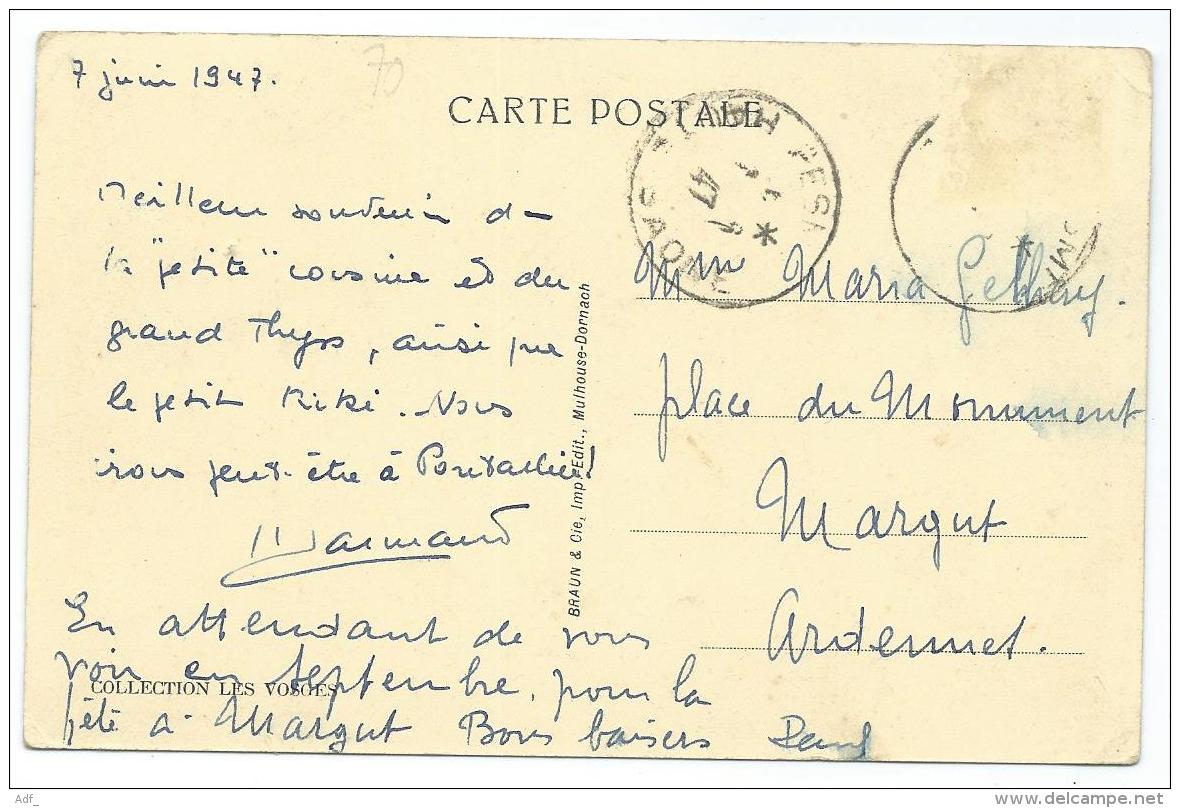 7 juin 1947.
70
CARTE POSTALE
Meilleur souvenir de
la "petite" cousine et du
grand Thyss, ainsi que
le petit Kiki. Nous
irons peut-être à
En attendant de vous
voir en septembre, pour la
fête à Margut Bons baisers
COLLECTION LES VOSGES
BRAUN & Cie, Imp.-Edit., Mulhouse-Dornach
SAONE
47
Mme Maria
place du Monument
Margut
Ardennes.
Adf_
www.delcampe.net